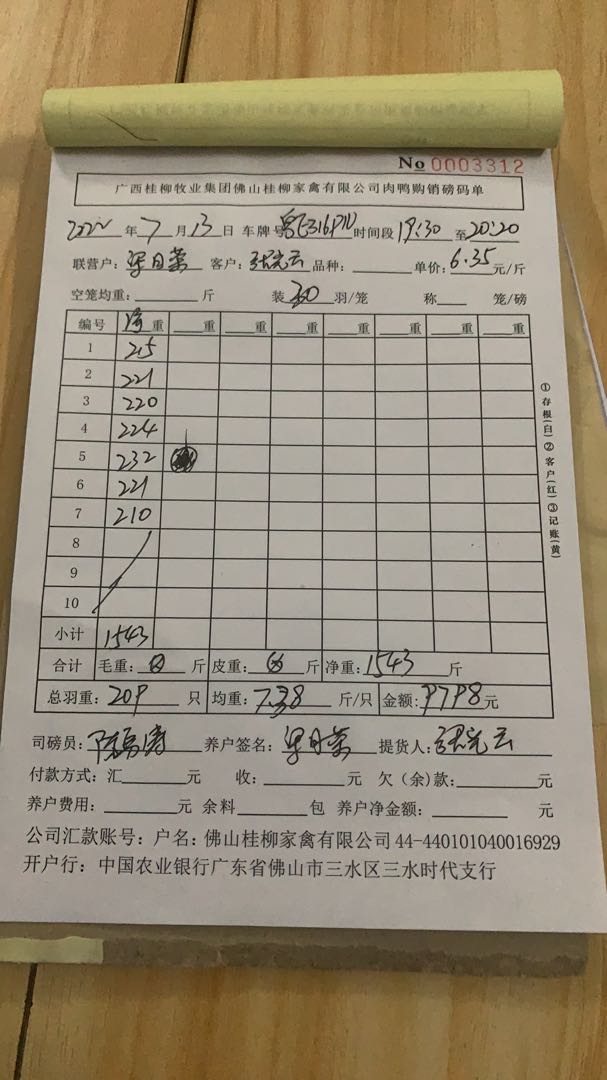 No 0003312
广西桂柳牧业集团佛山桂柳家禽有限公司肉鸭购销磅码单
2022 年 7 月 13 日 车牌号 粤E316PN 时间段 19:30 至 20:20
联营户: 梁日荣 客户: 张光云 品种: 单价: 6.35 元/斤
空笼均重: 斤 装 30 羽/笼 称 笼/磅
编号 净重 重 重 重 重 重 重 重
1 215
2 221
3 220
4 224
5 232
6 221
7 210
8
9
10
小计 1543
合计 毛重: 斤 皮重: 斤 净重: 1543 斤
总羽重: 209 只 均重: 7.38 斤/只 金额: 9798 元
司磅员: 陈 涛 养户签名: 梁日荣 提货人: 张光云
付款方式: 汇 元 收: 元 欠(余)款: 元
养户费用: 元 余料 包 养户净金额: 元
公司汇款账号: 户名: 佛山桂柳家禽有限公司 44-440101040016929
开户行: 中国农业银行广东省佛山市三水区三水时代支行
①存根(白)②客户(红)③记账(黄)